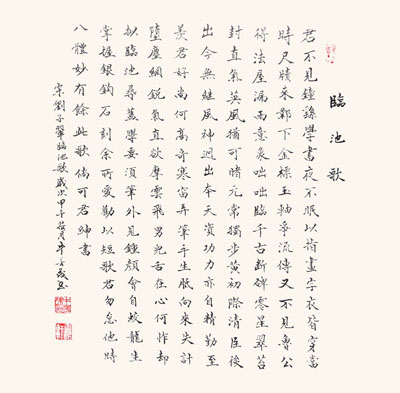 臨池歌
君不見鍾繇學書夜不眠以指畫字衣皆穿當
時尺牘來鄴下金標玉軸爭流傳又不見魯公
得法屋漏雨意象咄咄臨千古斷碑零星翠苔
封直氣英風猶可睹元常獨步黃初際清臣後
出今無繼風神迥出本天資功力亦自精勤至
羨君好尚何高奇寒窗弄筆手生胝向來失計
墮塵網銳氣直欲摩雲飛男兒舌在心何怍却
擬臨池尋舊學要須筆外見鍾顏會自蛟龍生
掌握銀鈎石刻余所愛勸以短歌君勿怠他時
八體妙有餘此歌倘可君紳書
宋劉子翬臨池歌歲次甲午